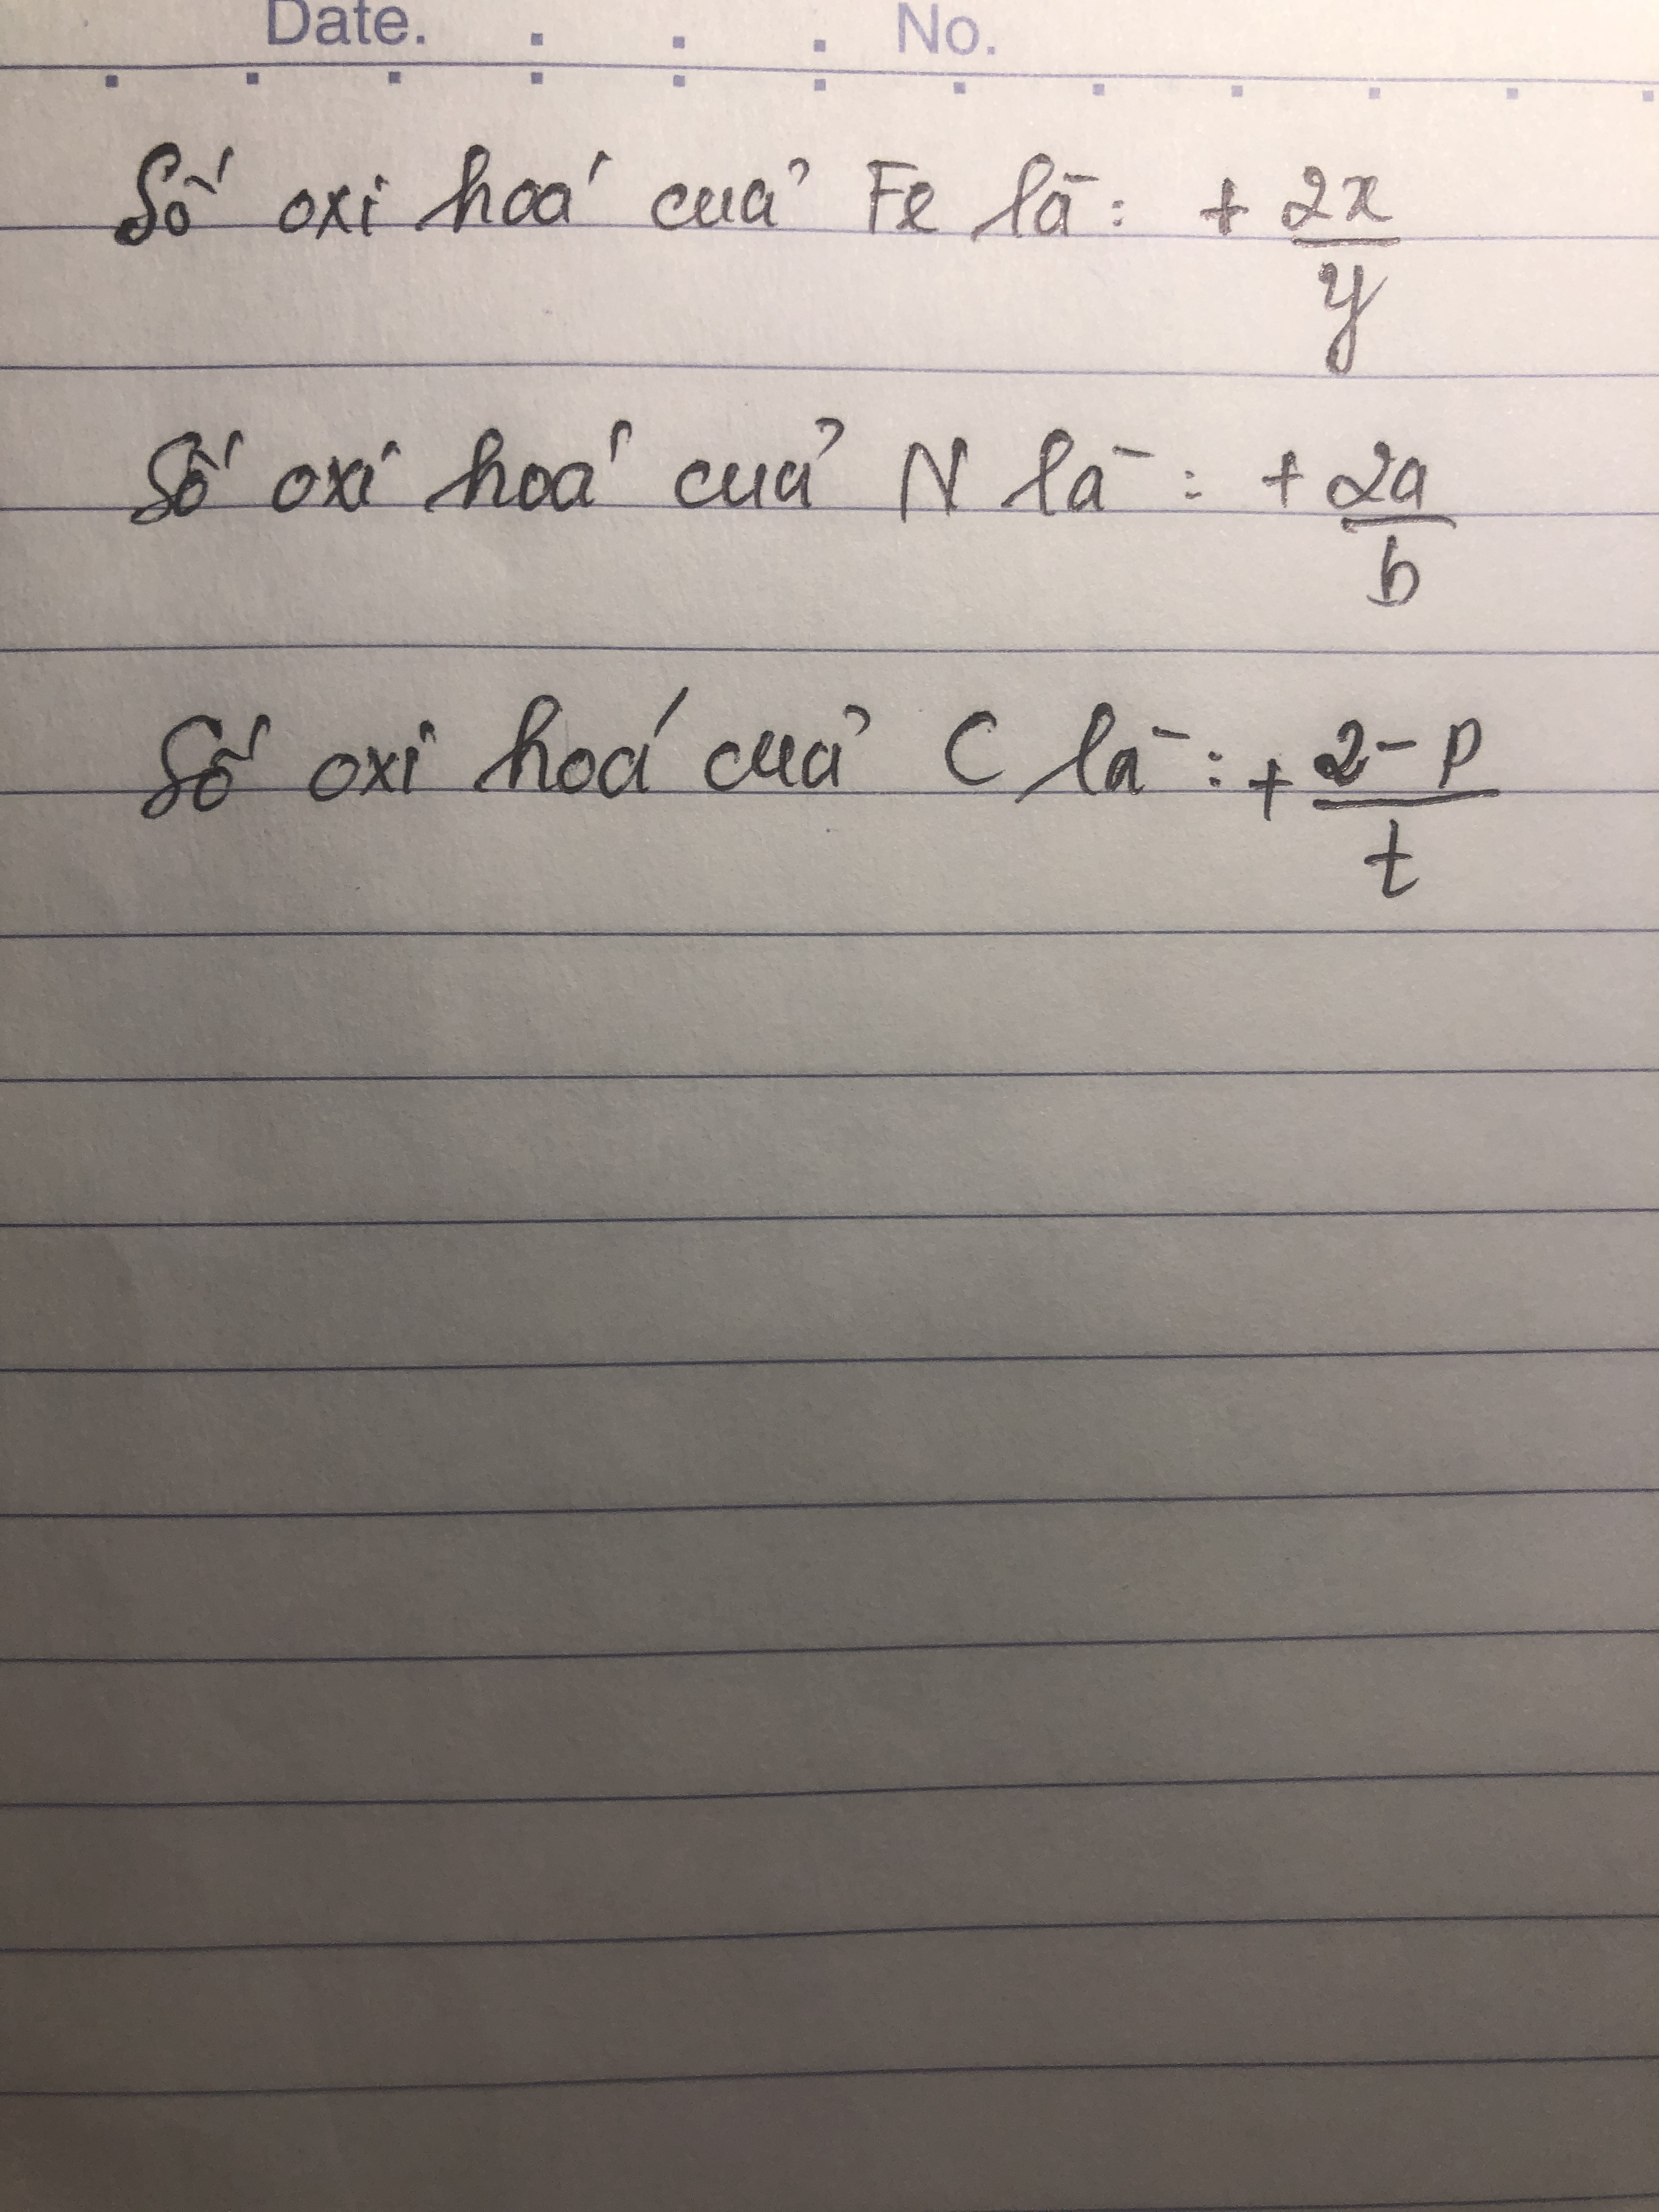 Date. No.
Số oxi hoá của Fe là: + 2x/y
Số oxi hoá của N là: + 2a/b
Số oxi hoá của C là: + 2-p/t